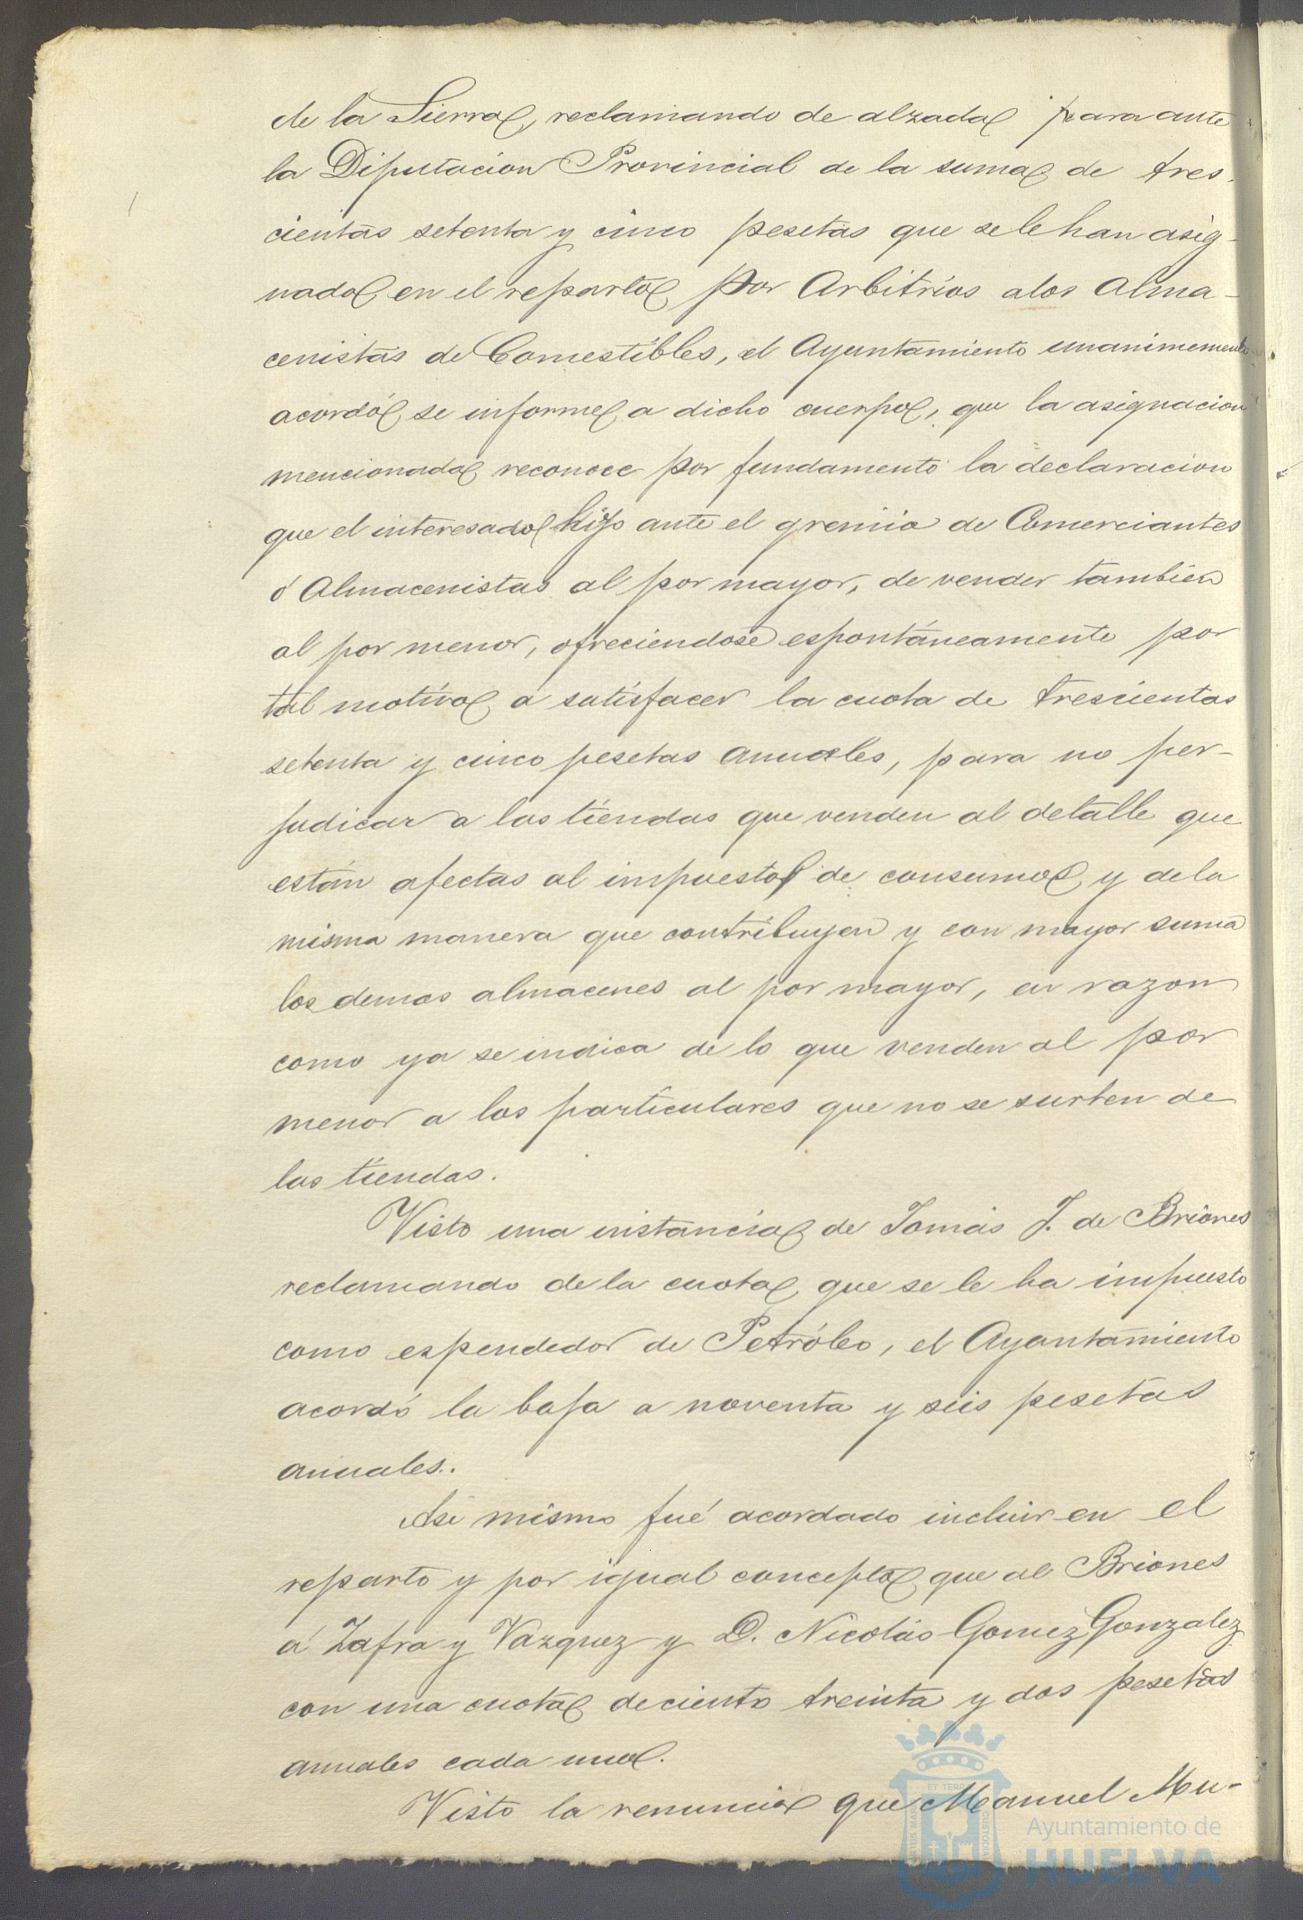 de la Sierra, reclamando de alzada para ante
la Diputacion Provincial de la suma de tres-
cientas setenta y cinco pesetas que se le han asig-
nado en el reparto por Arbitrios alos Alma-
cenistas de Comestibles, el Ayuntamiento unanimemente
acordó se informe a dicho cuerpo, que la asignacion
mencionada reconoce por fundamento la declaracion
que el interesado hizo ante el gremio de Comerciantes
ó Almacenistas al por mayor, de vender tambien
al por menor, ofreciendose espontáneamente por
tal motivo a satisfacer la cuota de trescientas
setenta y cinco pesetas anuales, para no per-
judicar a las tiendas que venden al detalle que
están afectas al impuesto de consumo y dela
misma manera que contribuyen y con mayor suma
los demas almacenes al por mayor, en razon
como ya se indica de lo que venden al por
menor a los particulares que no se surten de
las tiendas.
Visto una instancia de Tomás J. de Briones
reclamando de la cuota que se le ha impuesto
como espendedor de Petróleo, el Ayuntamiento
acordó la baja a noventa y seis pesetas
anuales.
Asi mismo fué acordado incluir en el
reparto y por igual concepto que al Briones
á Zafra y Vazquez y D. Nicolás Gomez Gonzalez
con una cuota de ciento treinta y dos pesetas
anuales cada uno.
Visto la renuncia que Manuel Mu-
Ayuntamiento de
HUELVA